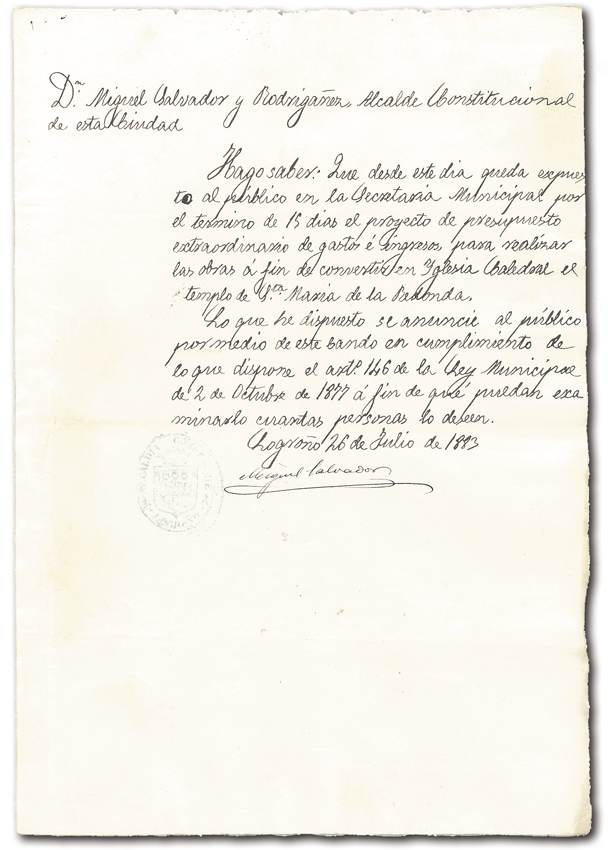 Dn. Miguel Salvador y Rodrigañez, Alcalde Constitucional
de esta Ciudad
Hago saber: Que desde este dia queda expues
to al público en la Secretaria Municipal por
el termino de 15 dias el proyecto de presupuesto
extraordinario de gastos é ingresos, para realizar
las obras á fin de convertir en Yglesia Catedral el
templo de Sta. Maria de la Redonda.
Lo que he dispuesto se anuncie al público
por medio de este bando en cumplimiento de
lo que dispone el artº. 146 de la Ley Municipal
de 2 de Octubre de 1877 á fin de que puedan exa
minarlo cuantas personas lo deseen.
Logroño 26 de Julio de 1893
Miguel Salvador